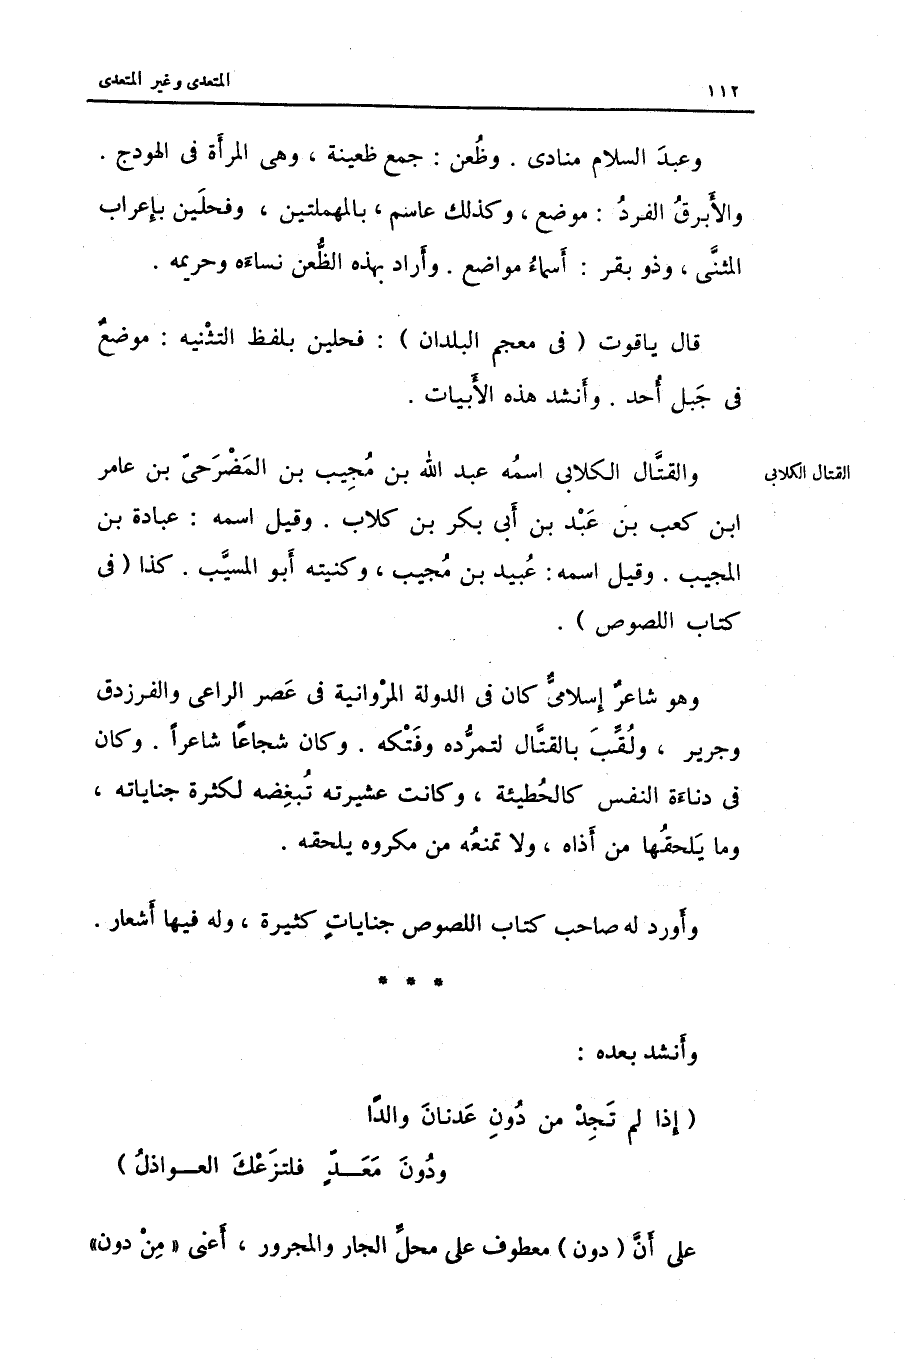 ١١٢
المتعدى وغير المتعدى
وعبدَ السلام منادى . وظُعن : جمع ظعينة ، وهى المرأة فى الهودج .
والأَبرقُ الفردُ : موضع ، وكذلك عاسم ، بالمهملتين ، وفحلَين بإعراب
المثنَّى ، وذو بقر : أسماءُ مواضع . وأراد بهذه الظُّعن نساءَه وحريمه .
قال ياقوت ( فى معجم البلدان ) : فحلين بلفظ التثْنيه : موضعٌ
فى جَبل أُحد . وأَنشد هذه الأَبيات .
القتال الكلابى
والقتَّال الكلابى اسمُه عبد الله بن مُجِيب بن المَضْرَحىّ بن عامر
ابن كعب بن عَبْد بن أبى بكر بن كلاب . وقيل اسمه : عبادة بن
المجيب . وقيل اسمه : عُبيد بن مُجيب ، وكنيته أَبو المسيَّب . كذا ( فى
كتاب اللصوص ) .
وهو شاعرٌ إسلامىٌّ كان فى الدولة المرْوانية فى عَصر الراعى والفرزدق
وجرير ، ولُقِّبَ بالقتَّال لتمرُّده وفَتْكه . وكان شجاعًا شاعراً . وكان
فى دناءَة النفس كالحُطيئة ، وكانت عشيرته تُبغِضه لكثرة جناياته ،
وما يَلحقُها من أَذاه ، ولا تمنعُه من مكروه يلحقه .
وأَورد له صاحب كتاب اللصوص جناياتٍ كثيرة ، وله فيها أَشعار .
* * *
وأَنشد بعده :
( إذا لم تَجِدْ من دُونِ عَدنانَ والدًا
ودُونَ مَعَـــدٍّ فلتزَعْكَ العــواذلُ )
على أَنَّ ( دون ) معطوف على محلِّ الجار والمجرور ، أَعنى « مِنْ دون»